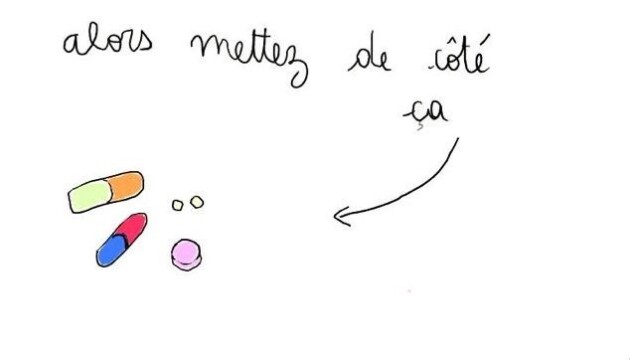 alors mettez de côté
ça